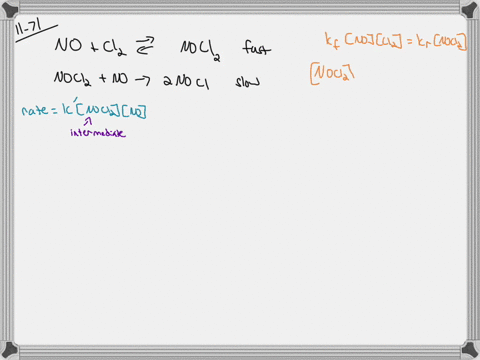 11-71
NO + Cl₂ ⇌ NOCl₂ fast
NOCl₂ + NO → 2NOCl slow
rate = k'[NOCl₂][NO]
intermediate
kf [NO][Cl₂] = kr [NOCl₂]
[NOCl₂]